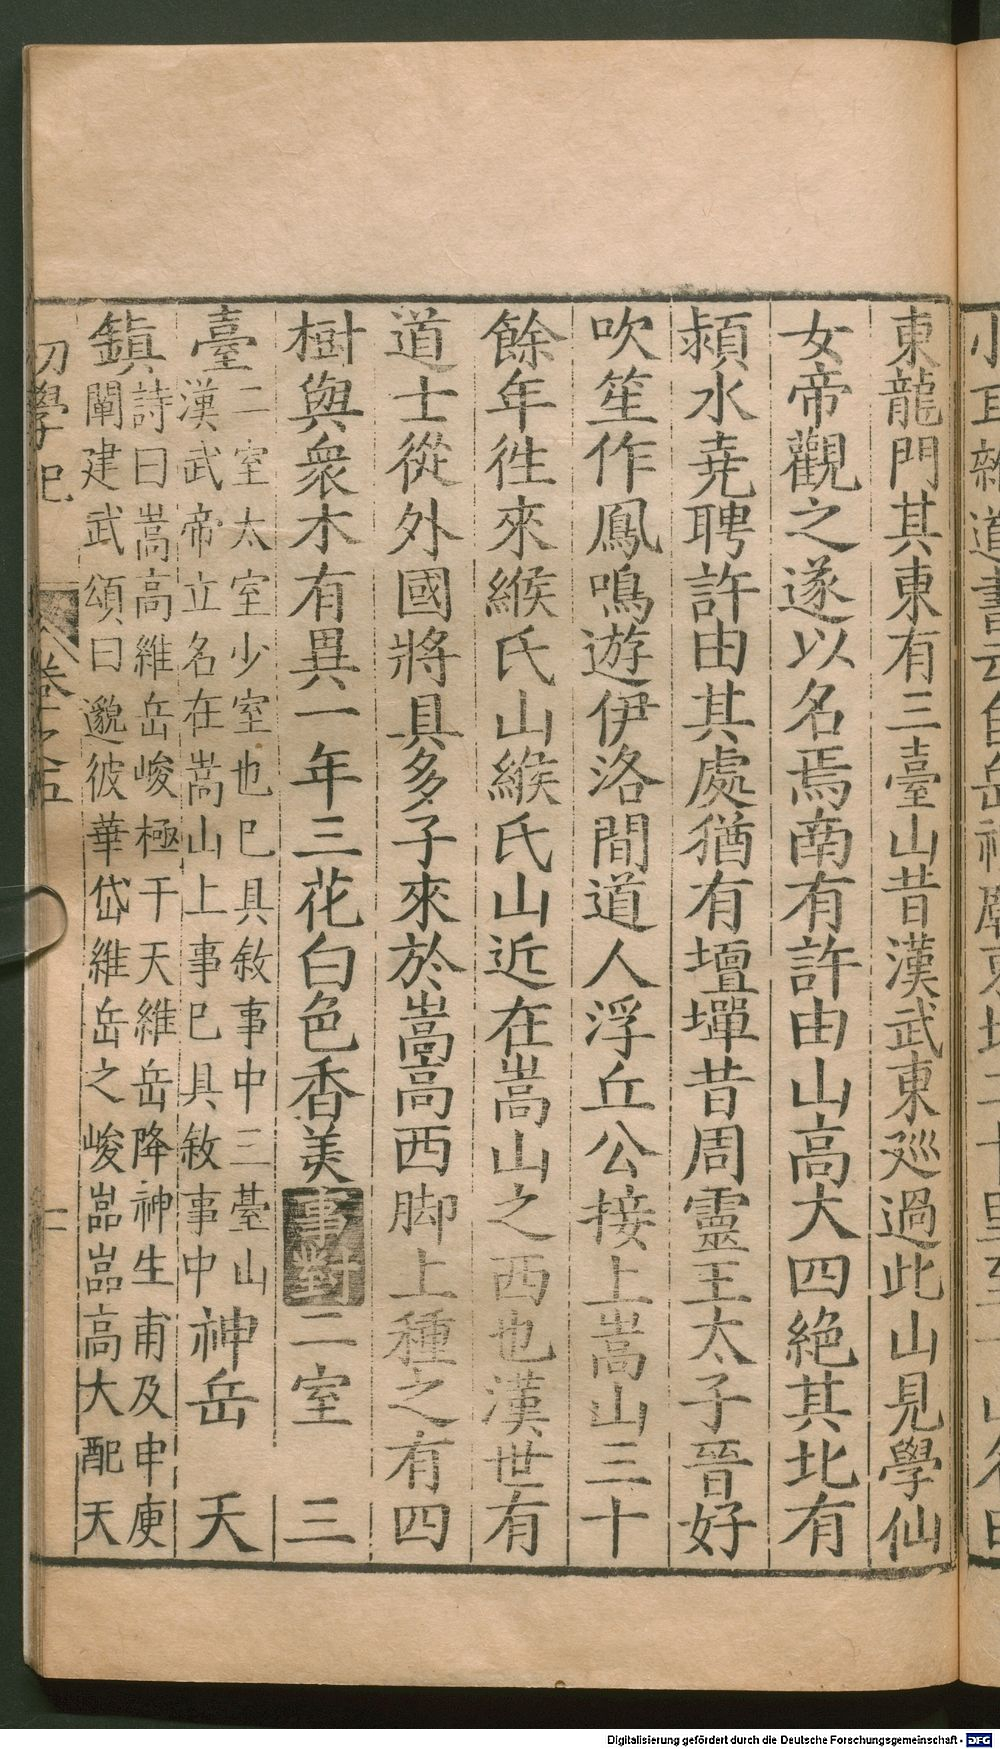 東龍門其東有三臺山昔漢武東廵過此山見學仙
女帝觀之遂以名焉南有許由山高大四絶其北有
潁水堯聘許由其處猶有壇墠昔周靈王太子晉好
吹笙作鳳鳴遊伊洛間道人浮丘公接上嵩山三十
餘年徃來緱氏山緱氏山近在嵩山之西也漢世有
道士從外國將具多子來於嵩高西脚上種之有四
樹與衆木有異一年三花白色香美事對二室 三
臺二室太室少室也巳具敘事中三臺山
漢武帝立名在嵩山上事巳具敘事中神岳 天
鎮詩曰嵩高維岳峻極于天維岳降神生甫及申庾
闡建武頌曰邈彼華岱維岳之峻嵓嵓高大配天
初學記 卷之五 二
Digitalisierung gefördert durch die Deutsche Forschungsgemeinschaft - DFG